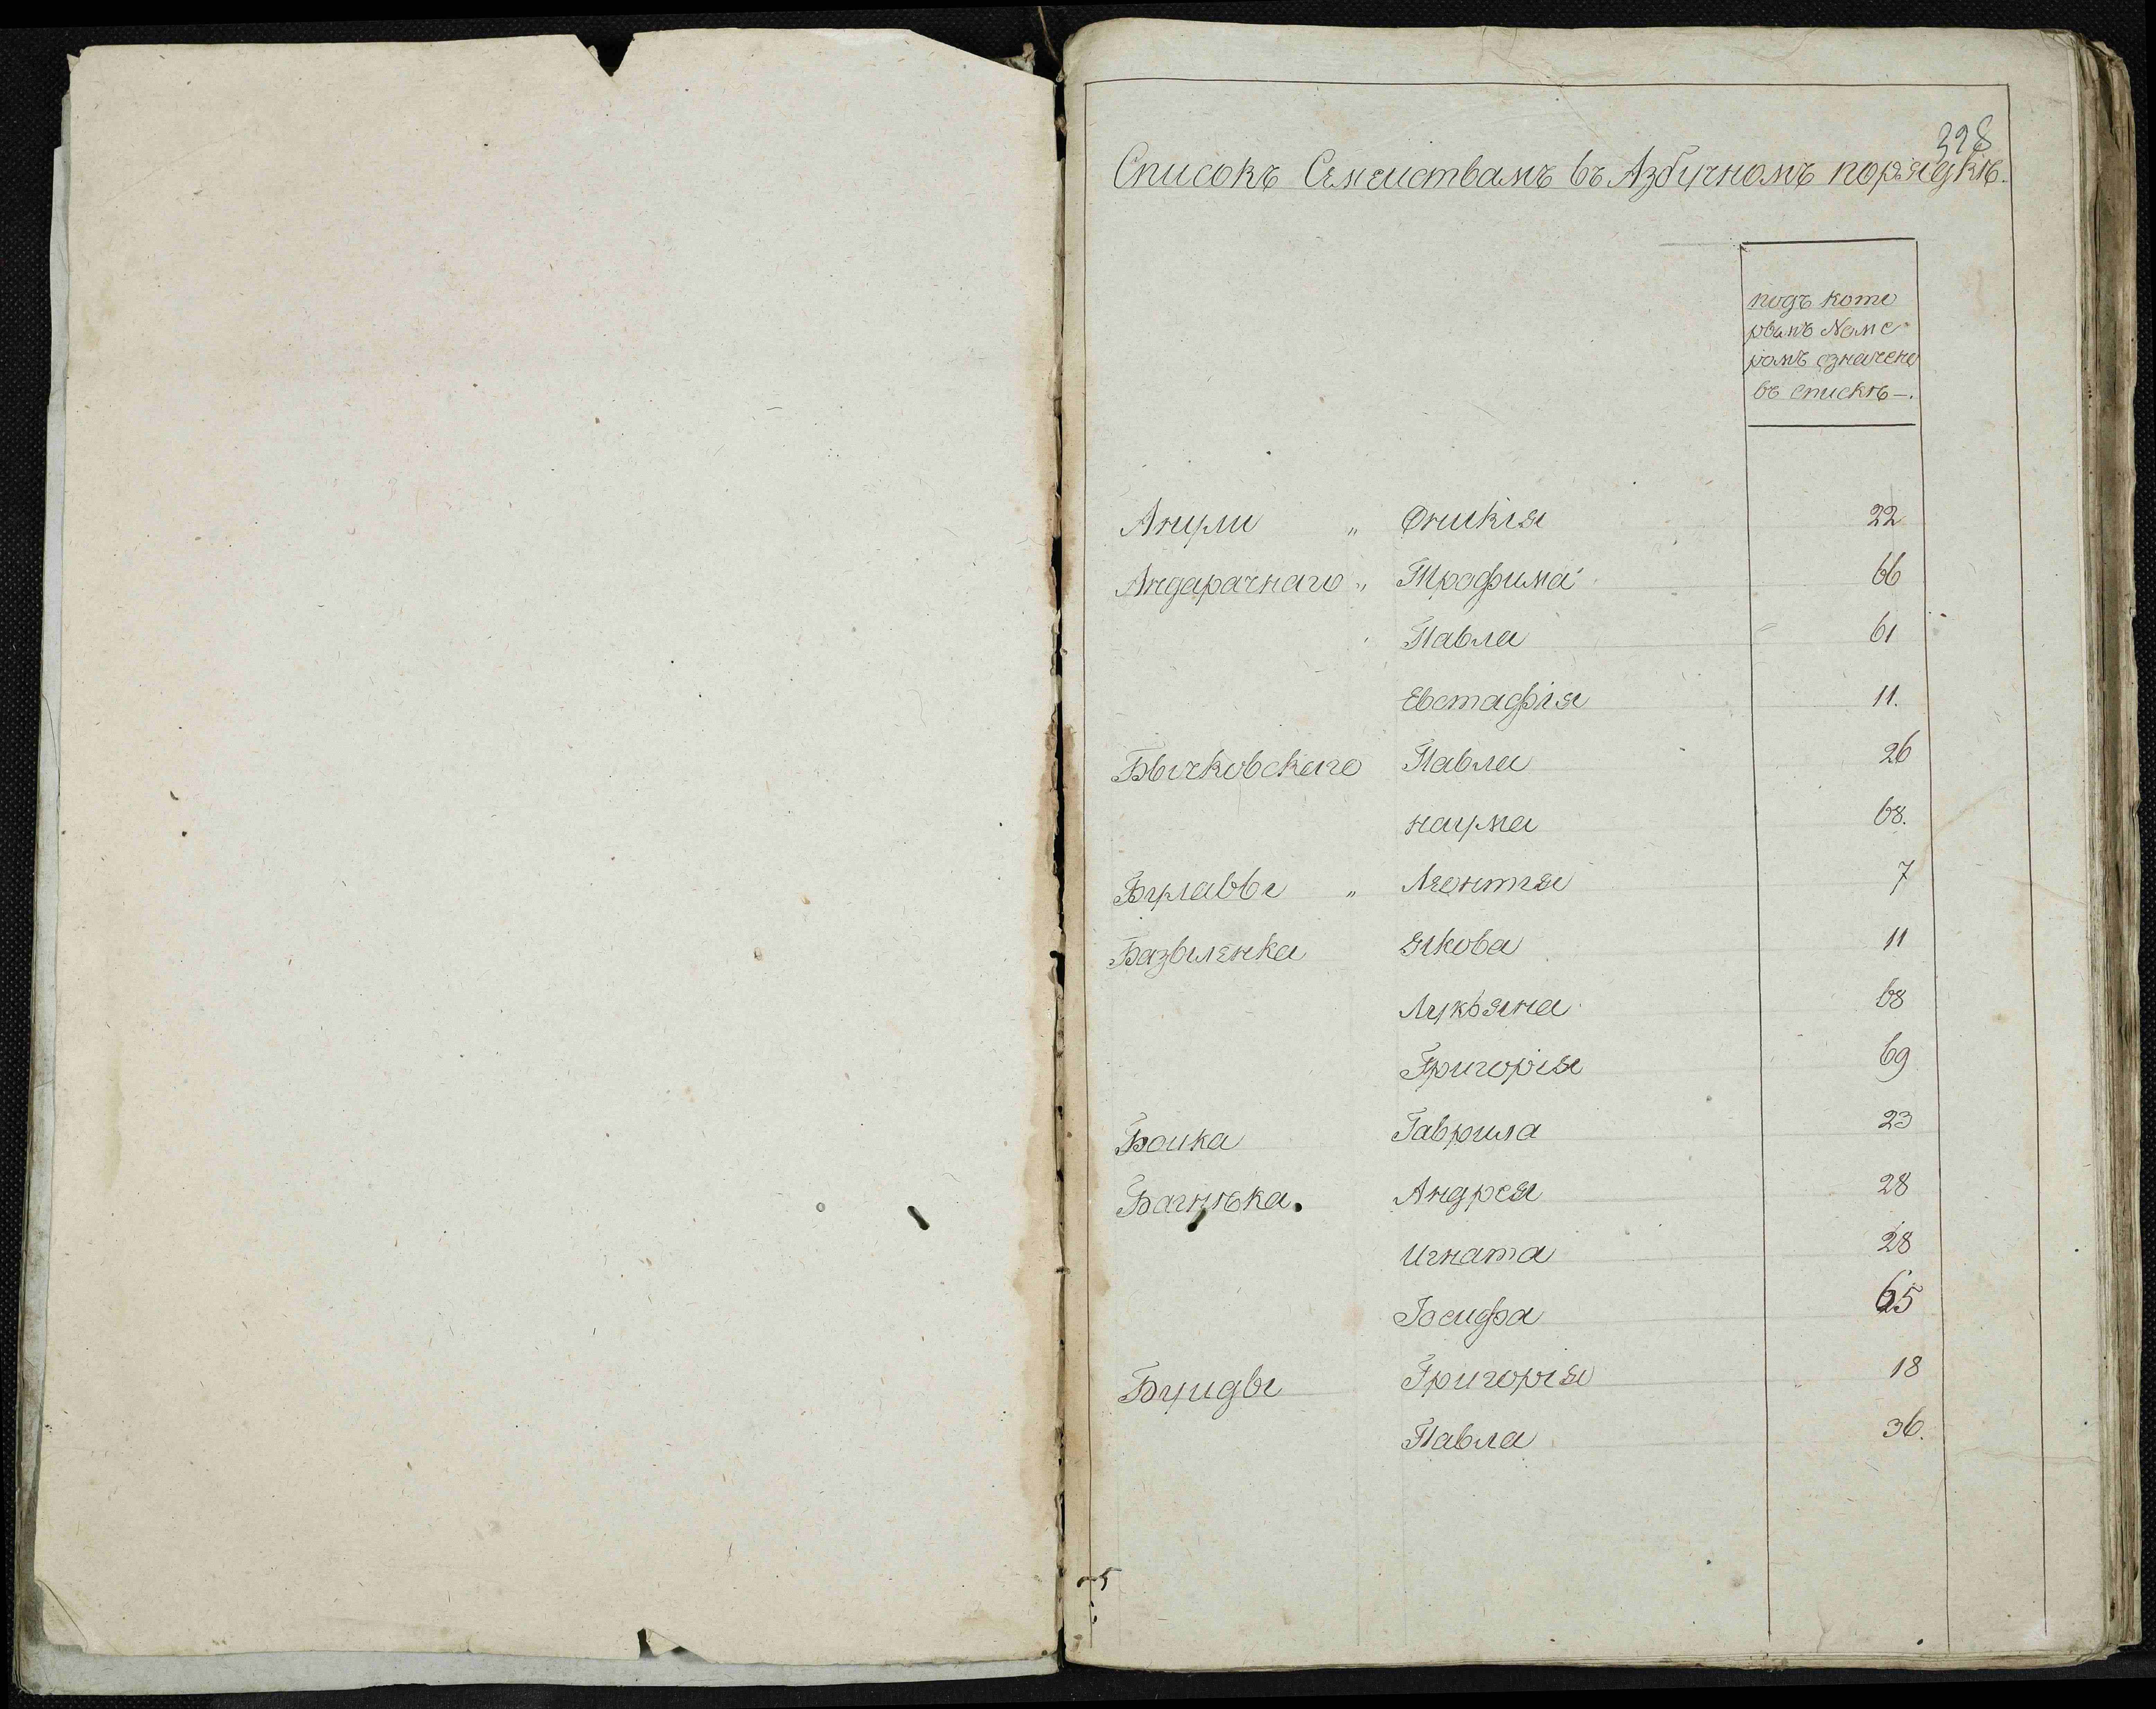 328
Списокъ Семеиствамъ въ Азбучномъ порядкѣ.
подъ кото
рымъ Номе
ромъ означено
въ спискѣ —.
Анури " Оникія 22
Андарачнаго " Трофима 66
Павла 61
Евстафія 11.
Бычковскаго Павла 26
наума 68.
Булавы " Леонтія 7
Базыленка Якова 11
Лукъяна 68
Григорія 69
Боика Гаврила 23
Багнѣка. Андрея 28
Игната 28
Іосифа 65
Буиды Григорія 18
Павла 36.